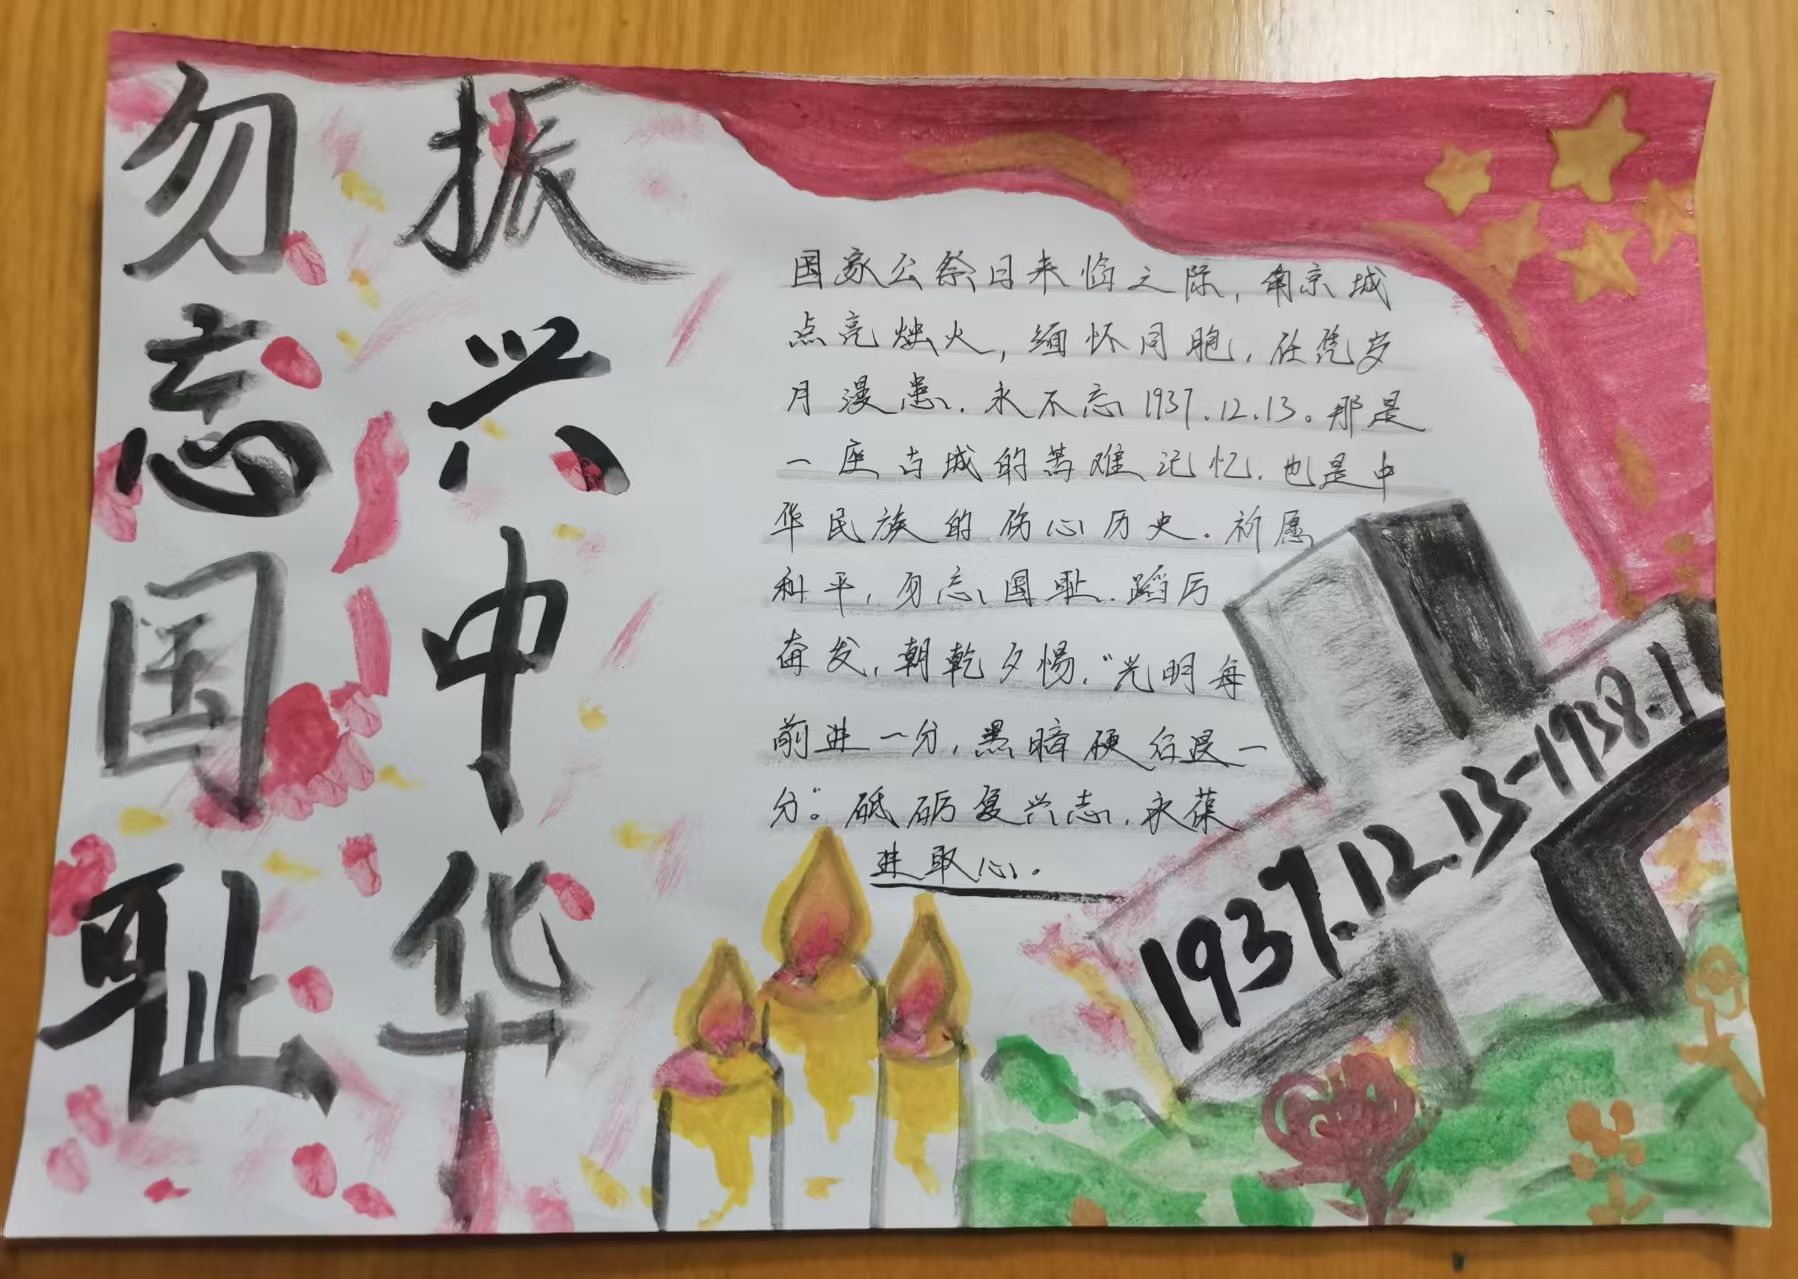 勿忘国耻
振兴中华
国家公祭日来临之际，南京城
点亮烛火，缅怀同胞，任凭岁
月漫患，永不忘1937.12.13。那是
一座古城的苦难记忆，也是中
华民族的伤心历史。祈愿
和平，勿忘国耻，蹈厉
奋发，朝乾夕惕，“光明每
前进一分，黑暗便后退一
分”。砥砺复兴志，永葆
进取心。
1937.12.13-1938.1